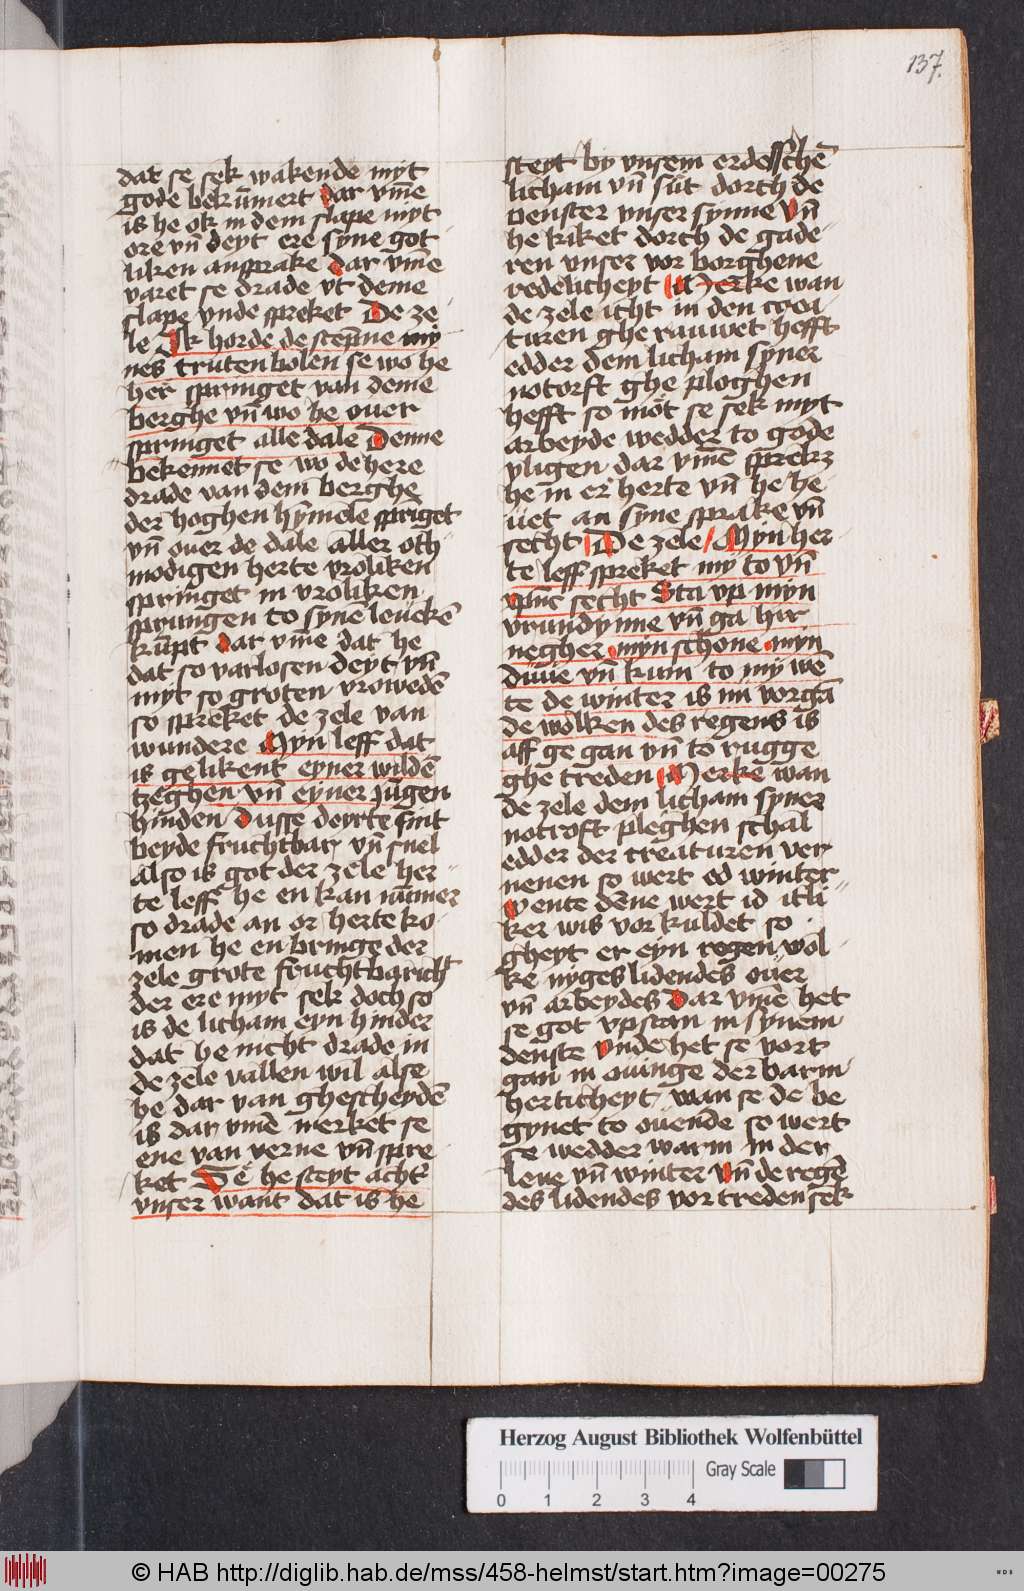 137
dat se sek wakende myt
gode bekūmert dar vm̄e
is he ok in dem slape myt
ore vn̄ deyt ere syne got
liken ansprake dar vm̄e
varet se drade vt deme
slape vnde spreket De ze
le Ik horde de stem̄ne my
nes truten bolen se wo he
her springet van deme
berghe vn̄ wo he ouer
springet alle dale Denne
bekennet se wo de here
drade van dem berghe
der hoghen hȳmele spriget
vn̄ ouer de dale aller oth
modigen herte vroliken
springet in vroliken
sprungen to synē leuekē
kūpt dar vm̄e dat he
dat so varlosen deyt vn̄
myt so groten vrowedē
so spreket de zele van
wundere Myn leff dat
is gelikent eyner wildē
tzeghen vn̄ eyner jūgen
hinden Dusse deyrte sint
beyde fruchtbar vn̄ snel
also is got der zele her
te leff he en kan nūmer
so drade an or herte ko
men he en bringe der
zele grote fruchtbaricht
der ere myt sek doch so
is de licham eyn hinder
dat he nicht drade in
de zele vallen wil alse
he dar van ghescheydē
is dar vm̄e merket se
ene van verne vn̄ spre
ket Sē he steyt achtr
vnser want dat is he
steyt by vnsem erdesschē
licham vn̄ sūt dorch de
venster vnser synne Vn̄
he kiket dorch de gade
ren vnser vor borghene
redelicheyt Merke wan
de zele icht in den crea
turen gherauwet hefft
edder dem licham syner
notorft ghe ploghen
hefft so mot se sek myt
arbeyde wedder to gode
vligen dar vm̄e sprekz
he in er herte vn̄ he he
uet an syne sprake vn̄
secht De zele Myn her
te leff spreket my to vn̄
vm̄e secht Sta vp myn
vrundynne vn̄ ga hir
negher myn schone myn
duue vn̄ kum to my wē
te de winter is nu vorgā
de wolken des regens is
aff ge gan vn̄ to rugge
ghe treden Merke wan
de zele dem licham syner
notroft pleghen schal
edder der creaturen ver
nenen so wert od winter
Wente dēne wert id itli
ker wis vor kuldet so
gheyt er eyn regen wol
ke nyges lidendes ouer
vn̄ arbeydes Dar vm̄e het
se got vpstan in synem
denste Vnde het se vort
gan in ouinge der barm
herticheyt wan se de be
gynet to ouende so wert
se wedder warm in der
leue vn̄ winter Vn̄ de regē
des lidendes vor treden sek
Herzog August Bibliothek Wolfenbüttel
Gray Scale
0 1 2 3 4
© HAB http://diglib.hab.de/mss/458-helmst/start.htm?image=00275